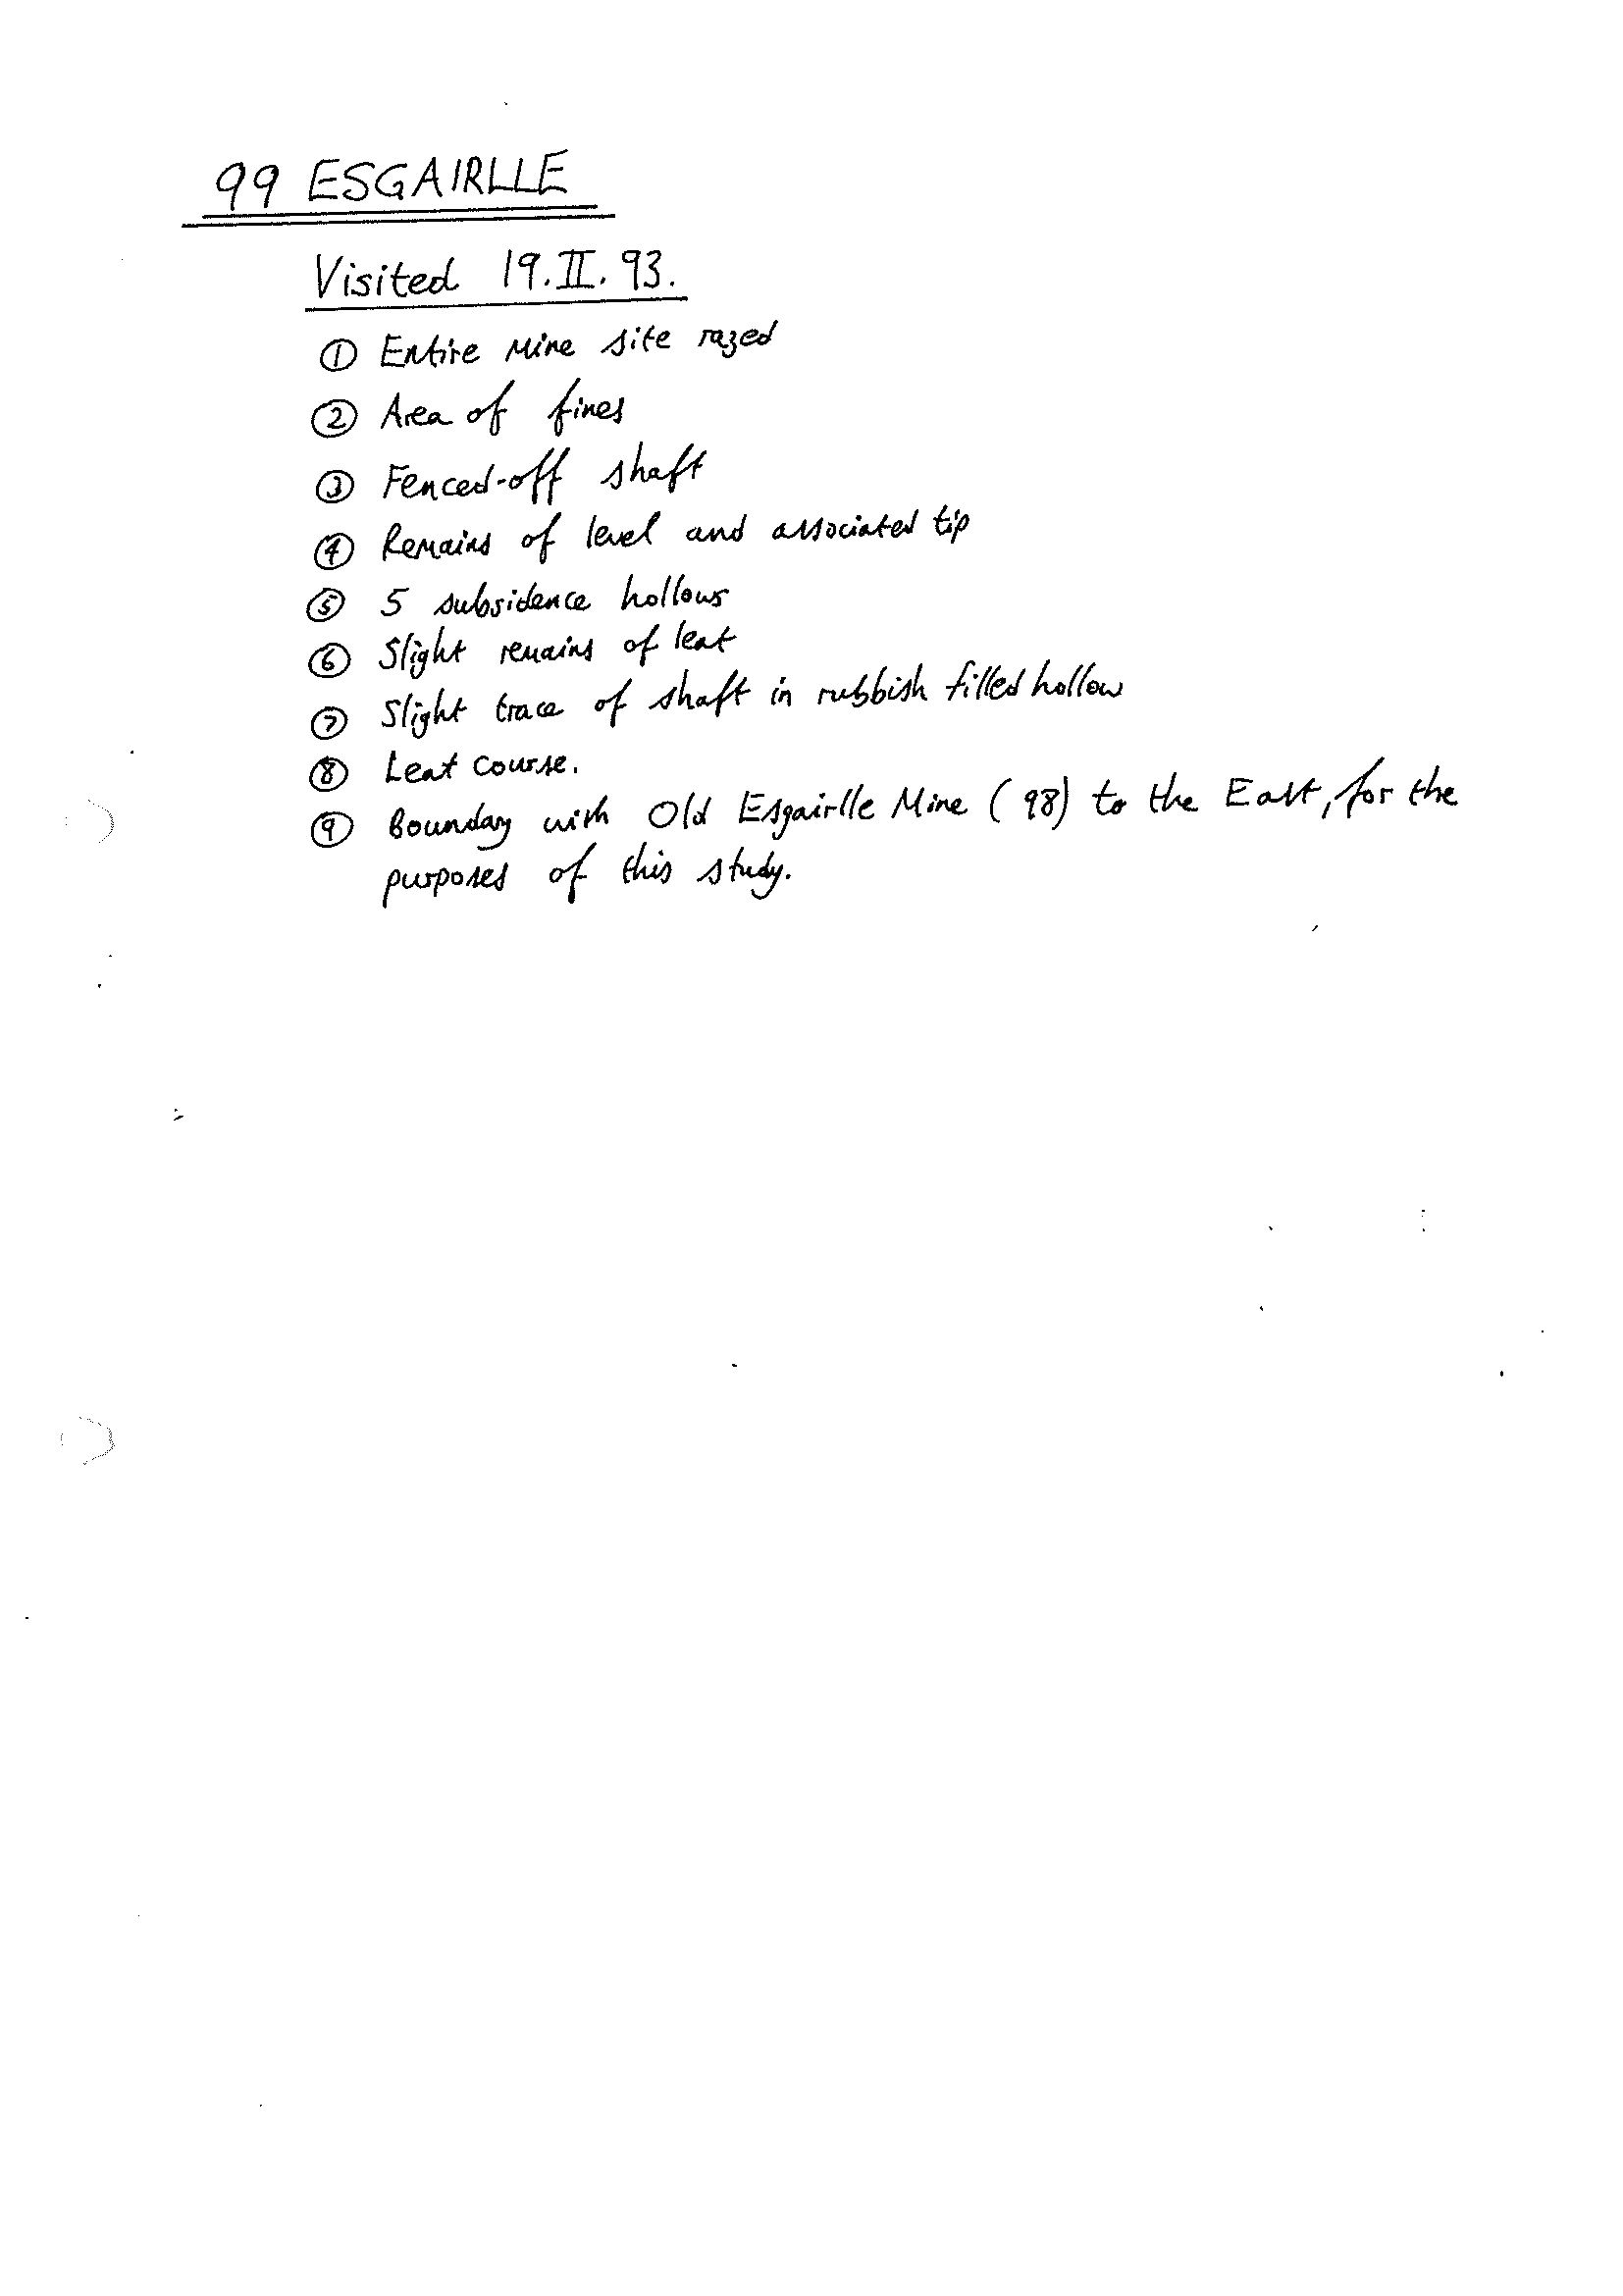 99 ESGAIRLLE
Visited 19.II.93.
① Entire Mine site razed
② Area of fines
③ Fenced-off shaft
④ Remains of level and associated tip
⑤ 5 subsidence hollows
⑥ Slight remains of leat
⑦ Slight trace of shaft in rubbish filled hollow
⑧ Leat course.
⑨ Boundary with Old Esgairlle Mine (98) to the East, for the
purposes of this study.